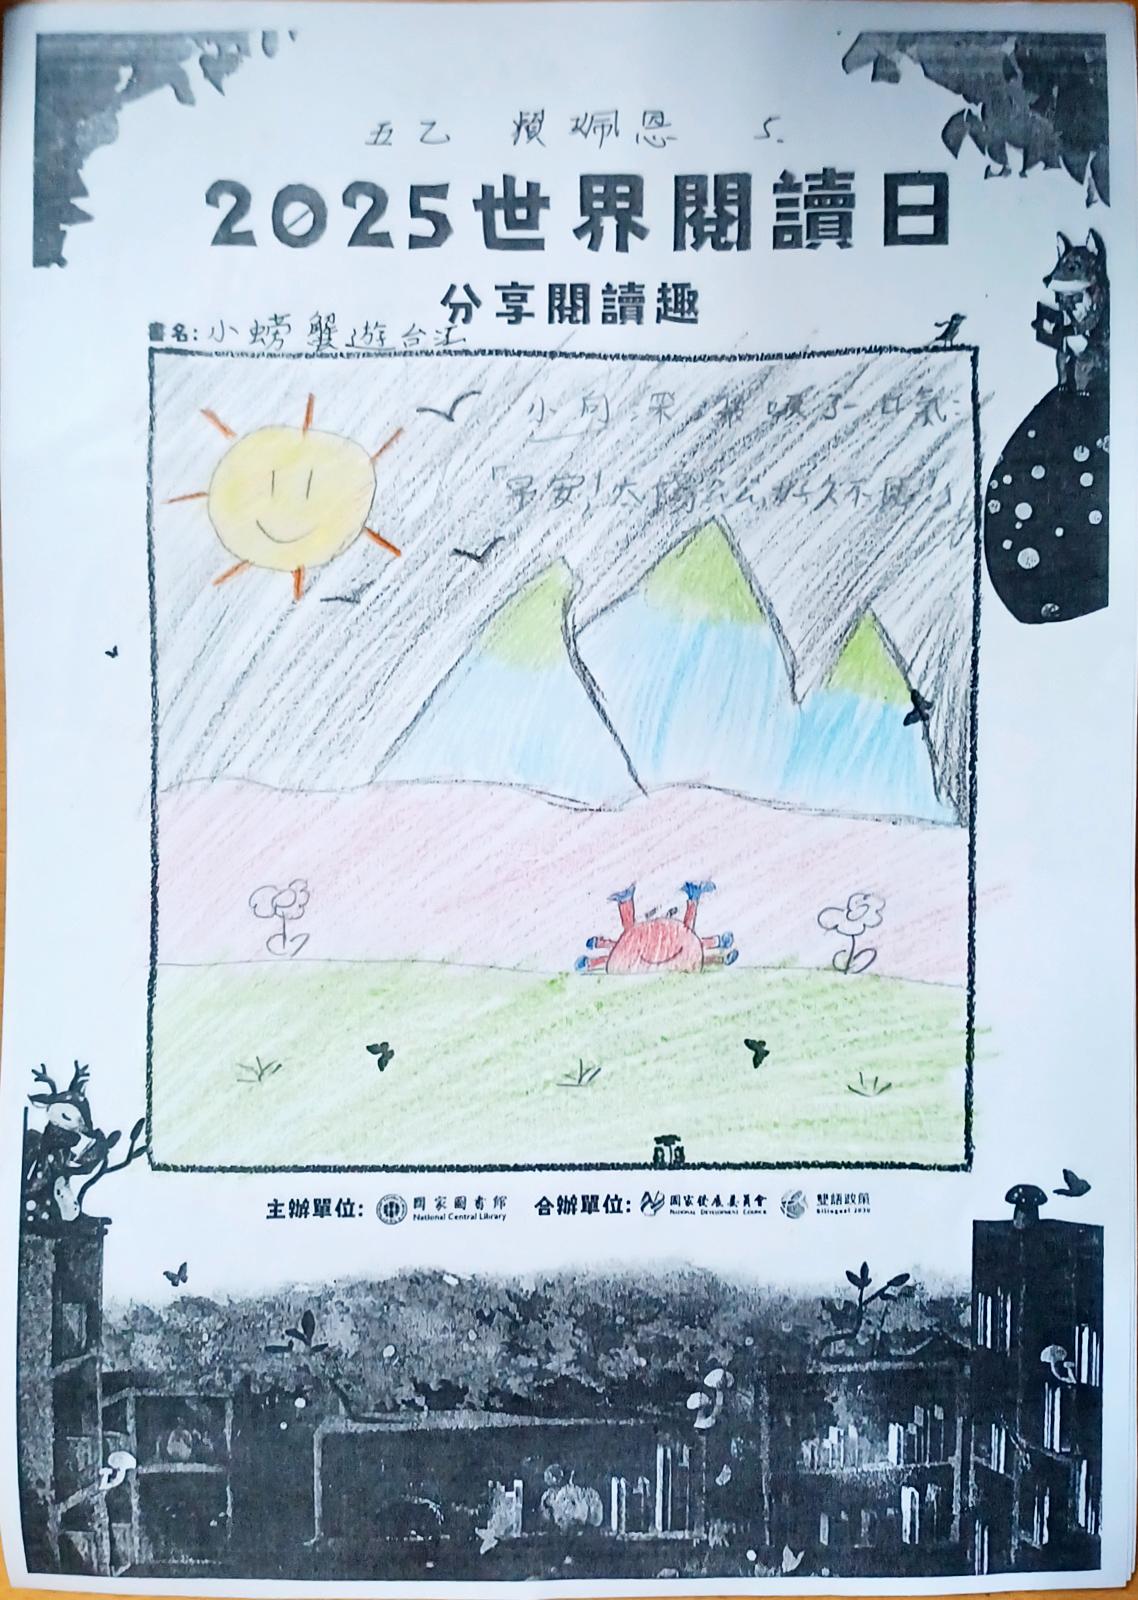 五乙 賴珮恩 5.
2025世界閱讀日
分享閱讀趣
書名:小螃蟹遊台江
小向深 吸了一口氣:
「早安!太陽公公好久不見」
主辦單位: 國家圖書館 National Central Library 合辦單位: 國家發展委員會 National Development Council 雙語政策 Bilingual 2030